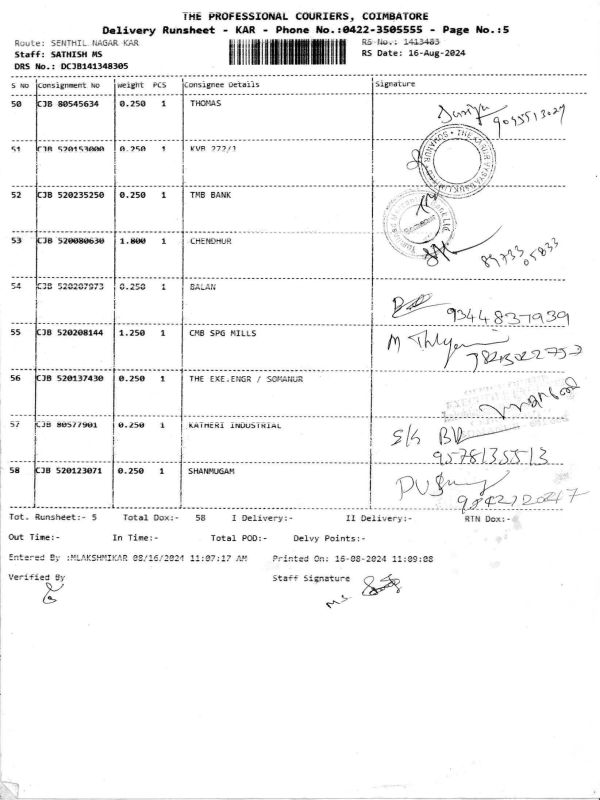 THE PROFESSIONAL COURIERS, COIMBATORE
Delivery Runsheet - KAR - Phone No.:0422-3505555 - Page No.:5
Route: SENTHIL NAGAR KAR RS No.: 1413483
Staff: SATHISH MS RS Date: 16-Aug-2024
DRS No.: DCJB141348305
S No Consignment No Weight PCS Consignee Details Signature
50 CJB 80545634 0.250 1 THOMAS
51 CJB 520153000 0.250 1 KVB 272/1
52 CJB 520235250 0.250 1 TMB BANK
53 CJB 520080630 1.800 1 CHENDHUR
89733 05833
54 CJB 520207973 0.250 1 BALAN
9344837939
55 CJB 520208144 1.250 1 CMB SPG MILLS
56 CJB 520137430 0.250 1 THE EXE.ENGR / SOMANUR
57 CJB 80577901 0.250 1 KATHERI INDUSTRIAL
9578135513
58 CJB 520123071 0.250 1 SHANMUGAM
Tot. Runsheet:- 5 Total Dox:- 58 I Delivery:- II Delivery:- RTN Dox:-
Out Time:- In Time:- Total POD:- Delvy Points:-
Entered By :MLAKSHMIKAR 08/16/2024 11:07:17 AM Printed On: 16-08-2024 11:09:08
Verified By Staff Signature
M.S.